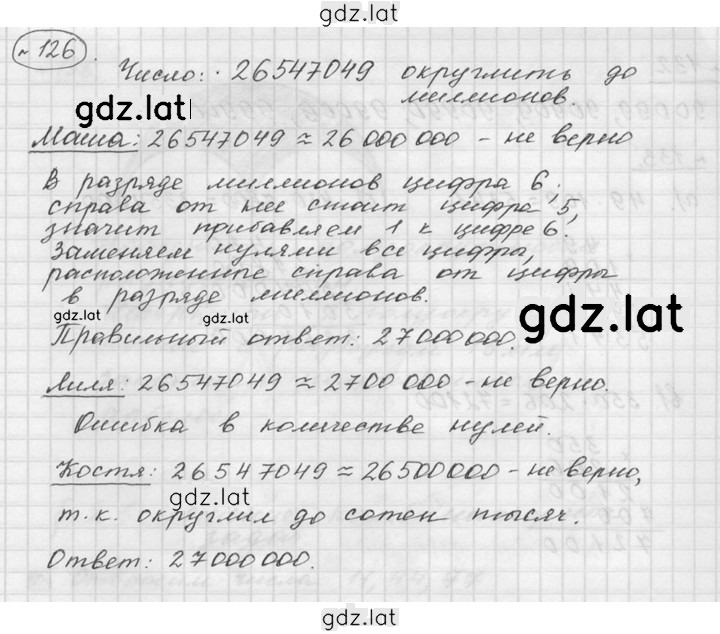 gdz.lat
№ 126.
Число: 26547049 округлить до
миллионов.
gdz.lat
Маша: 26547049 ≈ 26 000 000 - не верно
В разряде миллионов цифра 6,
справа от нее стоит цифра 5,
значит прибавляем 1 к цифре 6.
Заменяем нулями все цифра,
расположенные справа от цифры
в разряде миллионов.
gdz.lat gdz.lat gdz.lat
Правильный ответ: 27 000 000.
Лиля: 26547049 ≈ 2700 000 - не верно.
Ошибка в количестве нулей.
Костя: 26547049 ≈ 26500000 - не верно,
gdz.lat
т.к. округлил до сотен тысяч.
Ответ: 27 000 000.
gdz.lat
gdz.lat